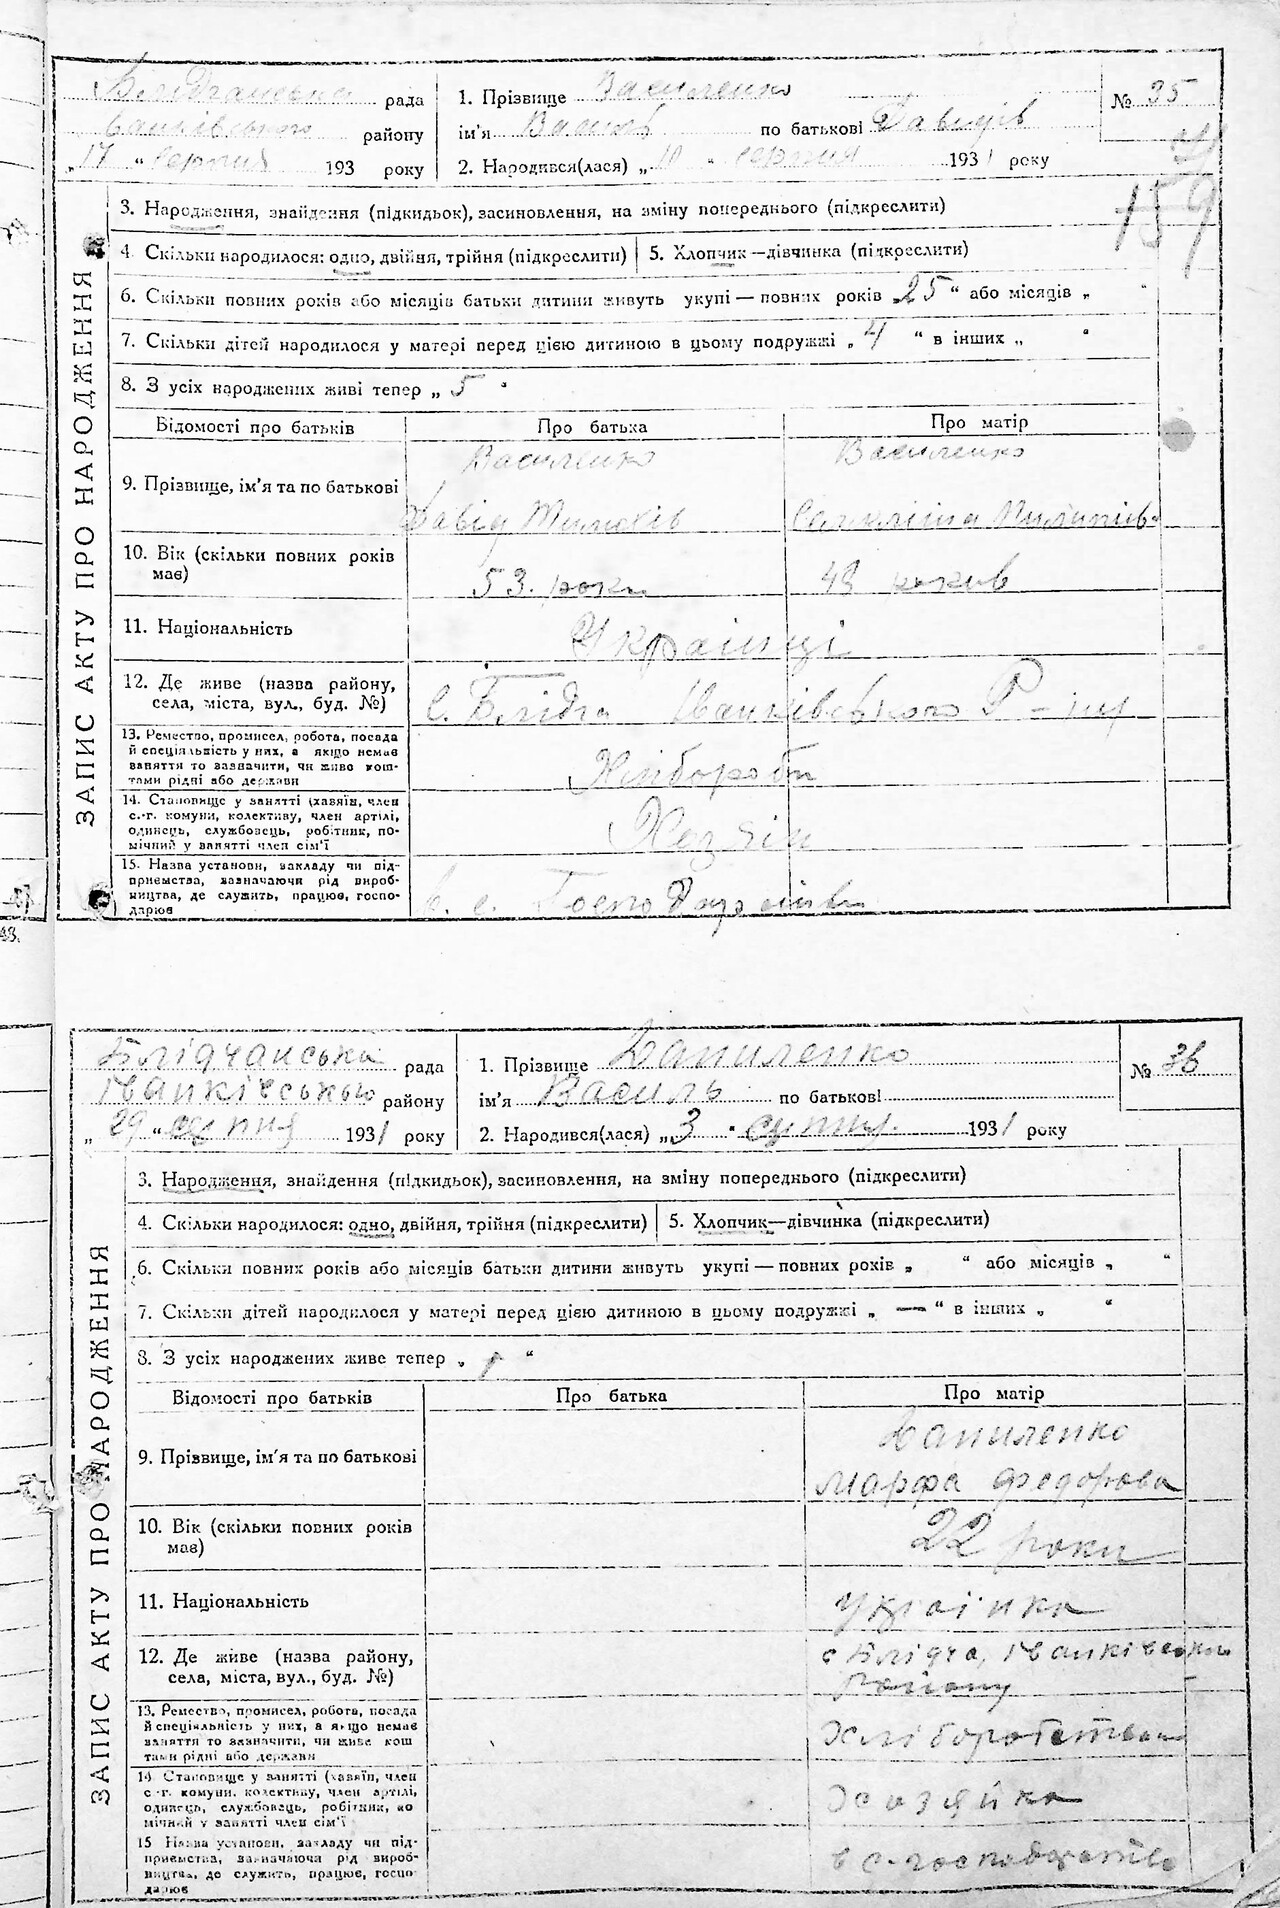 рада
району
„17 “ Серпня 193 року
1. Прізвище Василенко
ім'я Василь по батькові Давидів
2. Народився(лася) „10 “ серпня 1931 року
№ 35
159
ЗАПИС АКТУ ПРО НАРОДЖЕННЯ
3. Народження, знайдення (підкидьок), засиновлення, на зміну попереднього (підкреслити)
4. Скільки народилося: одно, двійня, трійня (підкреслити) 5. Хлопчик—дівчинка (підкреслити)
6. Скільки повних років або місяців батьки дитини живуть укупі — повних років „25 “ або місяців „ “
7. Скільки дітей народилося у матері перед цією дитиною в цьому подружжі „ 4 “ в інших „ “
8. З усіх народжених живі тепер „ 5 “
Відомості про батьків Про батька Про матір
Василенко Василенко
9. Прізвище, ім'я та по батькові
Давід
10. Вік (скільки повних років має) 53 роки 48 років
11. Національність Українці
12. Де живе (назва району, села, міста, вул., буд. №) с. Блідча Іванківського Р-ну
13. Ремество, промисел, робота, посада й спеціяльність у них, а якщо немає заняття то зазначити, чи живе коштами рідні або держави Хлібороби
14. Становище у занятті (хазяїн, член с.-г. комуни, колективу, член артілі, одинець, службовець, робітник, помічний у занятті член сім'ї Хозяїн
15. Назва установи, закладу чи підприємства, зазначаючи рід виробництва, де служить, працює, господарює
Блідчанська рада
Іванківського району
„ 29 “ серпня 1931 року
1. Прізвище Даниленко
ім'я Василь по батькові
2. Народився(лася) „ 3 “ серпня 1931 року
№ 36
ЗАПИС АКТУ ПРО НАРОДЖЕННЯ
3. Народження, знайдення (підкидьок), засиновлення, на зміну попереднього (підкреслити)
4. Скільки народилося: одно, двійня, трійня (підкреслити) 5. Хлопчик—дівчинка (підкреслити)
6. Скільки повних років або місяців батьки дитини живуть укупі — повних років „ “ або місяців „ “
7. Скільки дітей народилося у матері перед цією дитиною в цьому подружжі „ — “ в інших „ “
8. З усіх народжених живе тепер „ 1 “
Відомості про батьків Про батька Про матір
Даниленко
9. Прізвище, ім'я та по батькові
Марфа Федорова
10. Вік (скільки повних років має) 22 роки
11. Національність Українка
12. Де живе (назва району, села, міста, вул., буд. №) с Блідча, Іванківського Району
13. Ремество, промисел, робота, посада й спеціяльність у них, а якщо немає заняття то зазначити, чи живе коштами рідні або держави Хліборобство
14. Становище у занятті (хазяїн, член с.-г. комуни, колективу, член артілі, одинець, службовець, робітник, помічний у занятті член сім'ї Хозяйка
15 Назва установи, закладу чи підприємства, зазначаючи рід виробництва, де служить, працює, господарює